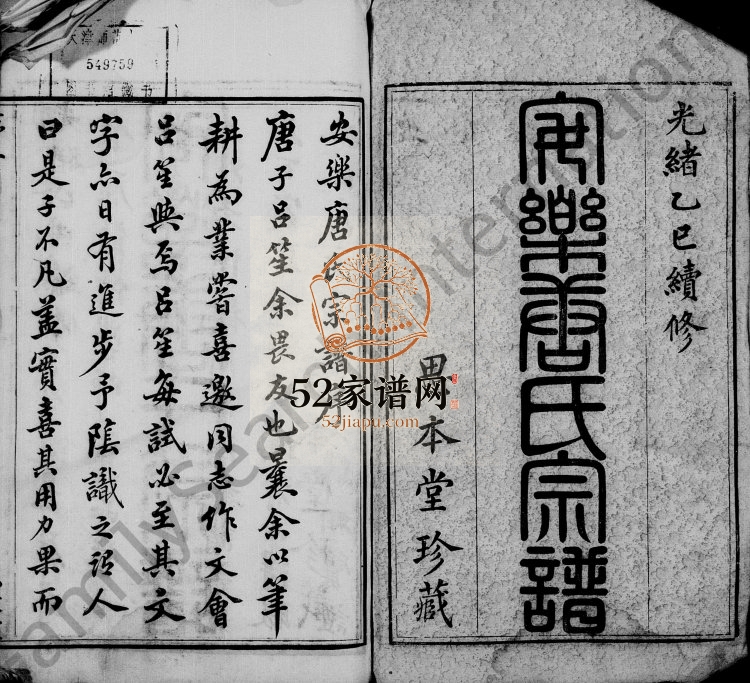 光緒乙巳續修
安樂唐氏宗譜
思本堂珍藏
安樂唐氏宗譜序
唐子呂笙余畏友也曩余以筆
耕為業嘗喜邀同志作文會
呂笙與焉呂笙每試必至其文
字亦日有進步予陰識之謂人
曰是子不凡蓋實喜其用力果而
549759
52家谱网
52jiapu.com
FamilySearch International